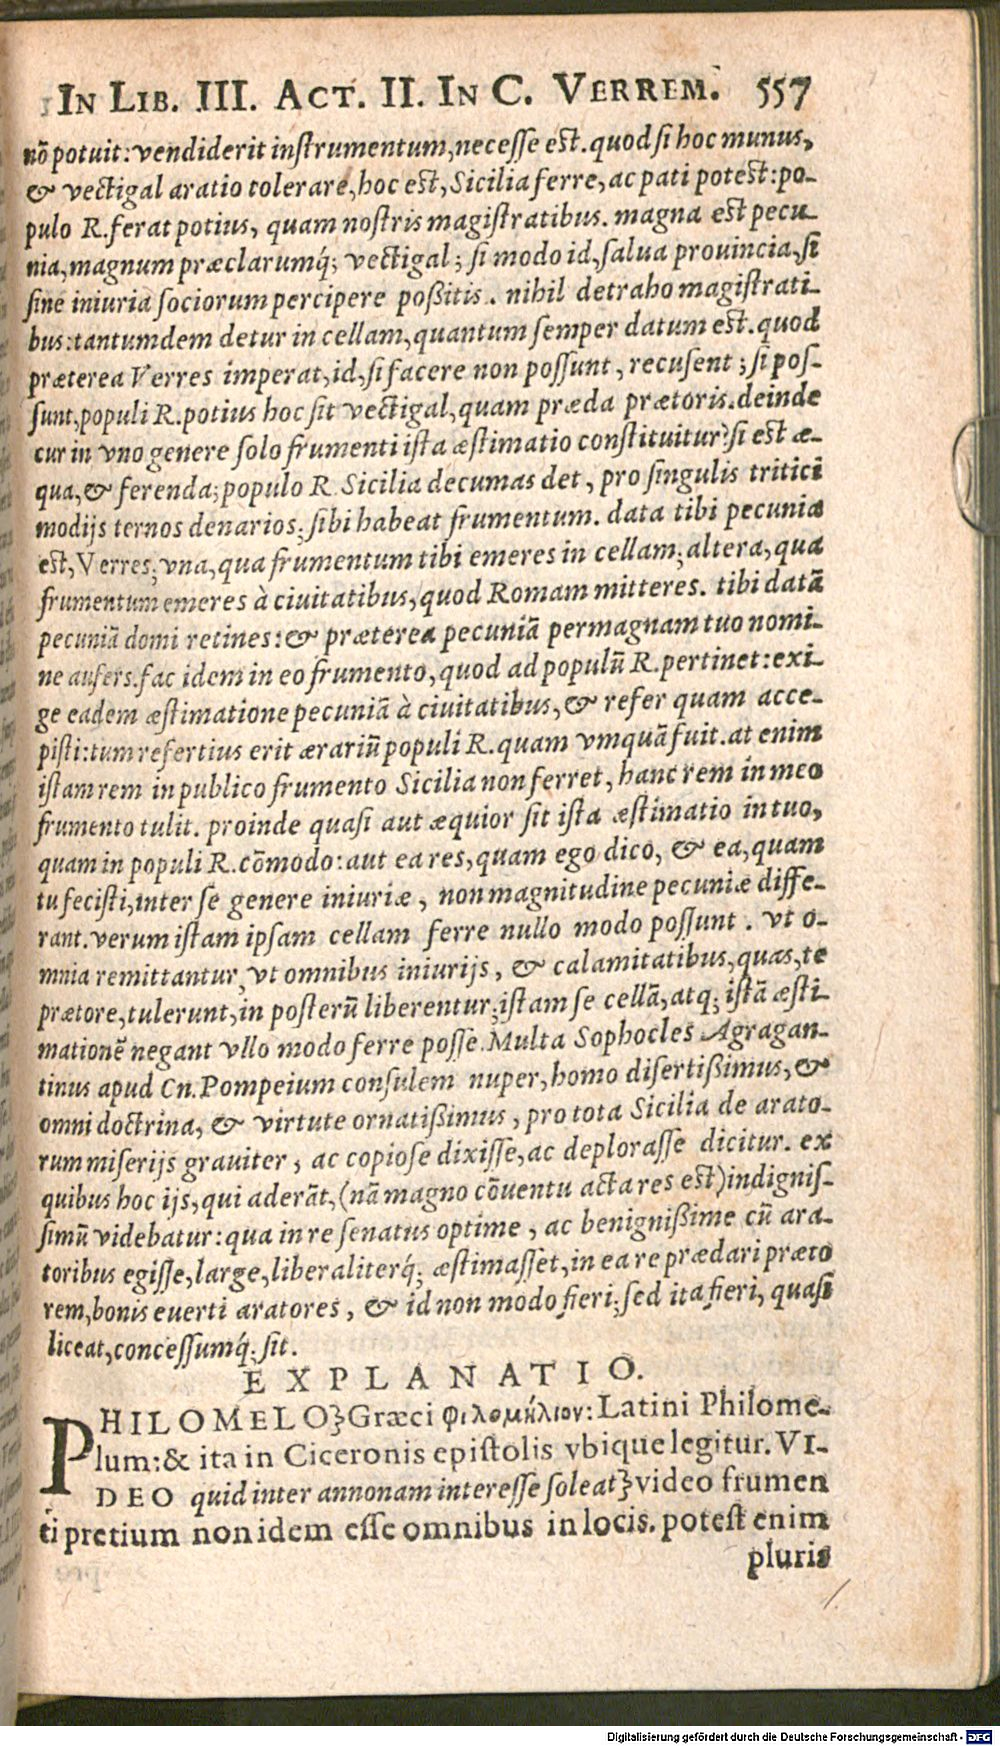 IN LIB. III. ACT. II. IN C. VERREM. 557
nō potuit: vendiderit instrumentum, necesse est. quod si hoc munus,
& vectigal aratio tolerare, hoc est, Sicilia ferre, ac pati potest: po-
pulo R. ferat potius, quam nostris magistratibus. magna est pecu-
nia, magnum præclarumq́; vectigal; si modo id, salua prouincia, si
sine iniuria sociorum percipere poßitis. nihil detraho magistrati-
bus: tantumdem detur in cellam, quantum semper datum est. quod
præterea Verres imperat, id, si facere non possunt, recusent; si pos-
sunt, populi R. potius hoc sit vectigal, quam præda prætoris. deinde
cur in vno genere solo frumenti ista æstimatio constituitur? si est æ-
qua, & ferenda; populo R. Sicilia decumas det, pro singulis tritici
modijs ternos denarios; sibi habeat frumentum. data tibi pecunia
est, Verres; vna, qua frumentum tibi emeres in cellam; altera, qua
frumentum emeres à ciuitatibus, quod Romam mitteres. tibi datā
pecuniā domi retines: & præterea pecuniā permagnam tuo nomi-
ne aufers. fac idem in eo frumento, quod ad populū R. pertinet: exi-
ge eadem æstimatione pecuniā à ciuitatibus, & refer quam acce-
pisti: tum refertius erit ærariū populi R. quam vmquā fuit. at enim
istam rem in publico frumento Sicilia non ferret, hanc rem in meo
frumento tulit. proinde quasi aut æquior sit ista æstimatio in tuo,
quam in populi R. cōmodo: aut ea res, quam ego dico, & ea, quam
tu fecisti, inter se genere iniuriæ, non magnitudine pecuniæ diffe-
rant. verum istam ipsam cellam ferre nullo modo possunt. vt o-
mnia remittantur, vt omnibus iniurijs, & calamitatibus, quas, te
prætore, tulerunt, in posterū liberentur; istam se cellā, atq; istā æsti-
mationē negant vllo modo ferre posse. Multa Sophocles Agragan-
tinus apud Cn. Pompeium consulem nuper, homo disertißimus, &
omni doctrina, & virtute ornatißimus, pro tota Sicilia de arato-
rum miserijs grauiter, ac copiose dixisse, ac deplorasse dicitur. ex
quibus hoc ijs, qui aderāt, (nā magno cōuentu acta res est) indignis-
simū videbatur: qua in re senatus optime, ac benignißime cū ara-
toribus egisse, large, liberaliterq́; æstimasset, in ea re prædari præto
rem, bonis euerti aratores, & id non modo fieri; sed ita fieri, quasi
liceat, concessumq́; sit.
EXPLANATIO.
PHILOMELO] Græci φιλομήλιον: Latini Philome-
lum: & ita in Ciceronis epistolis vbique legitur. VI-
DEO quid inter annonam interesse soleat] video frumen
ti pretium non idem esse omnibus in locis. potest enim
pluris
Digitalisierung gefördert durch die Deutsche Forschungsgemeinschaft - DFG